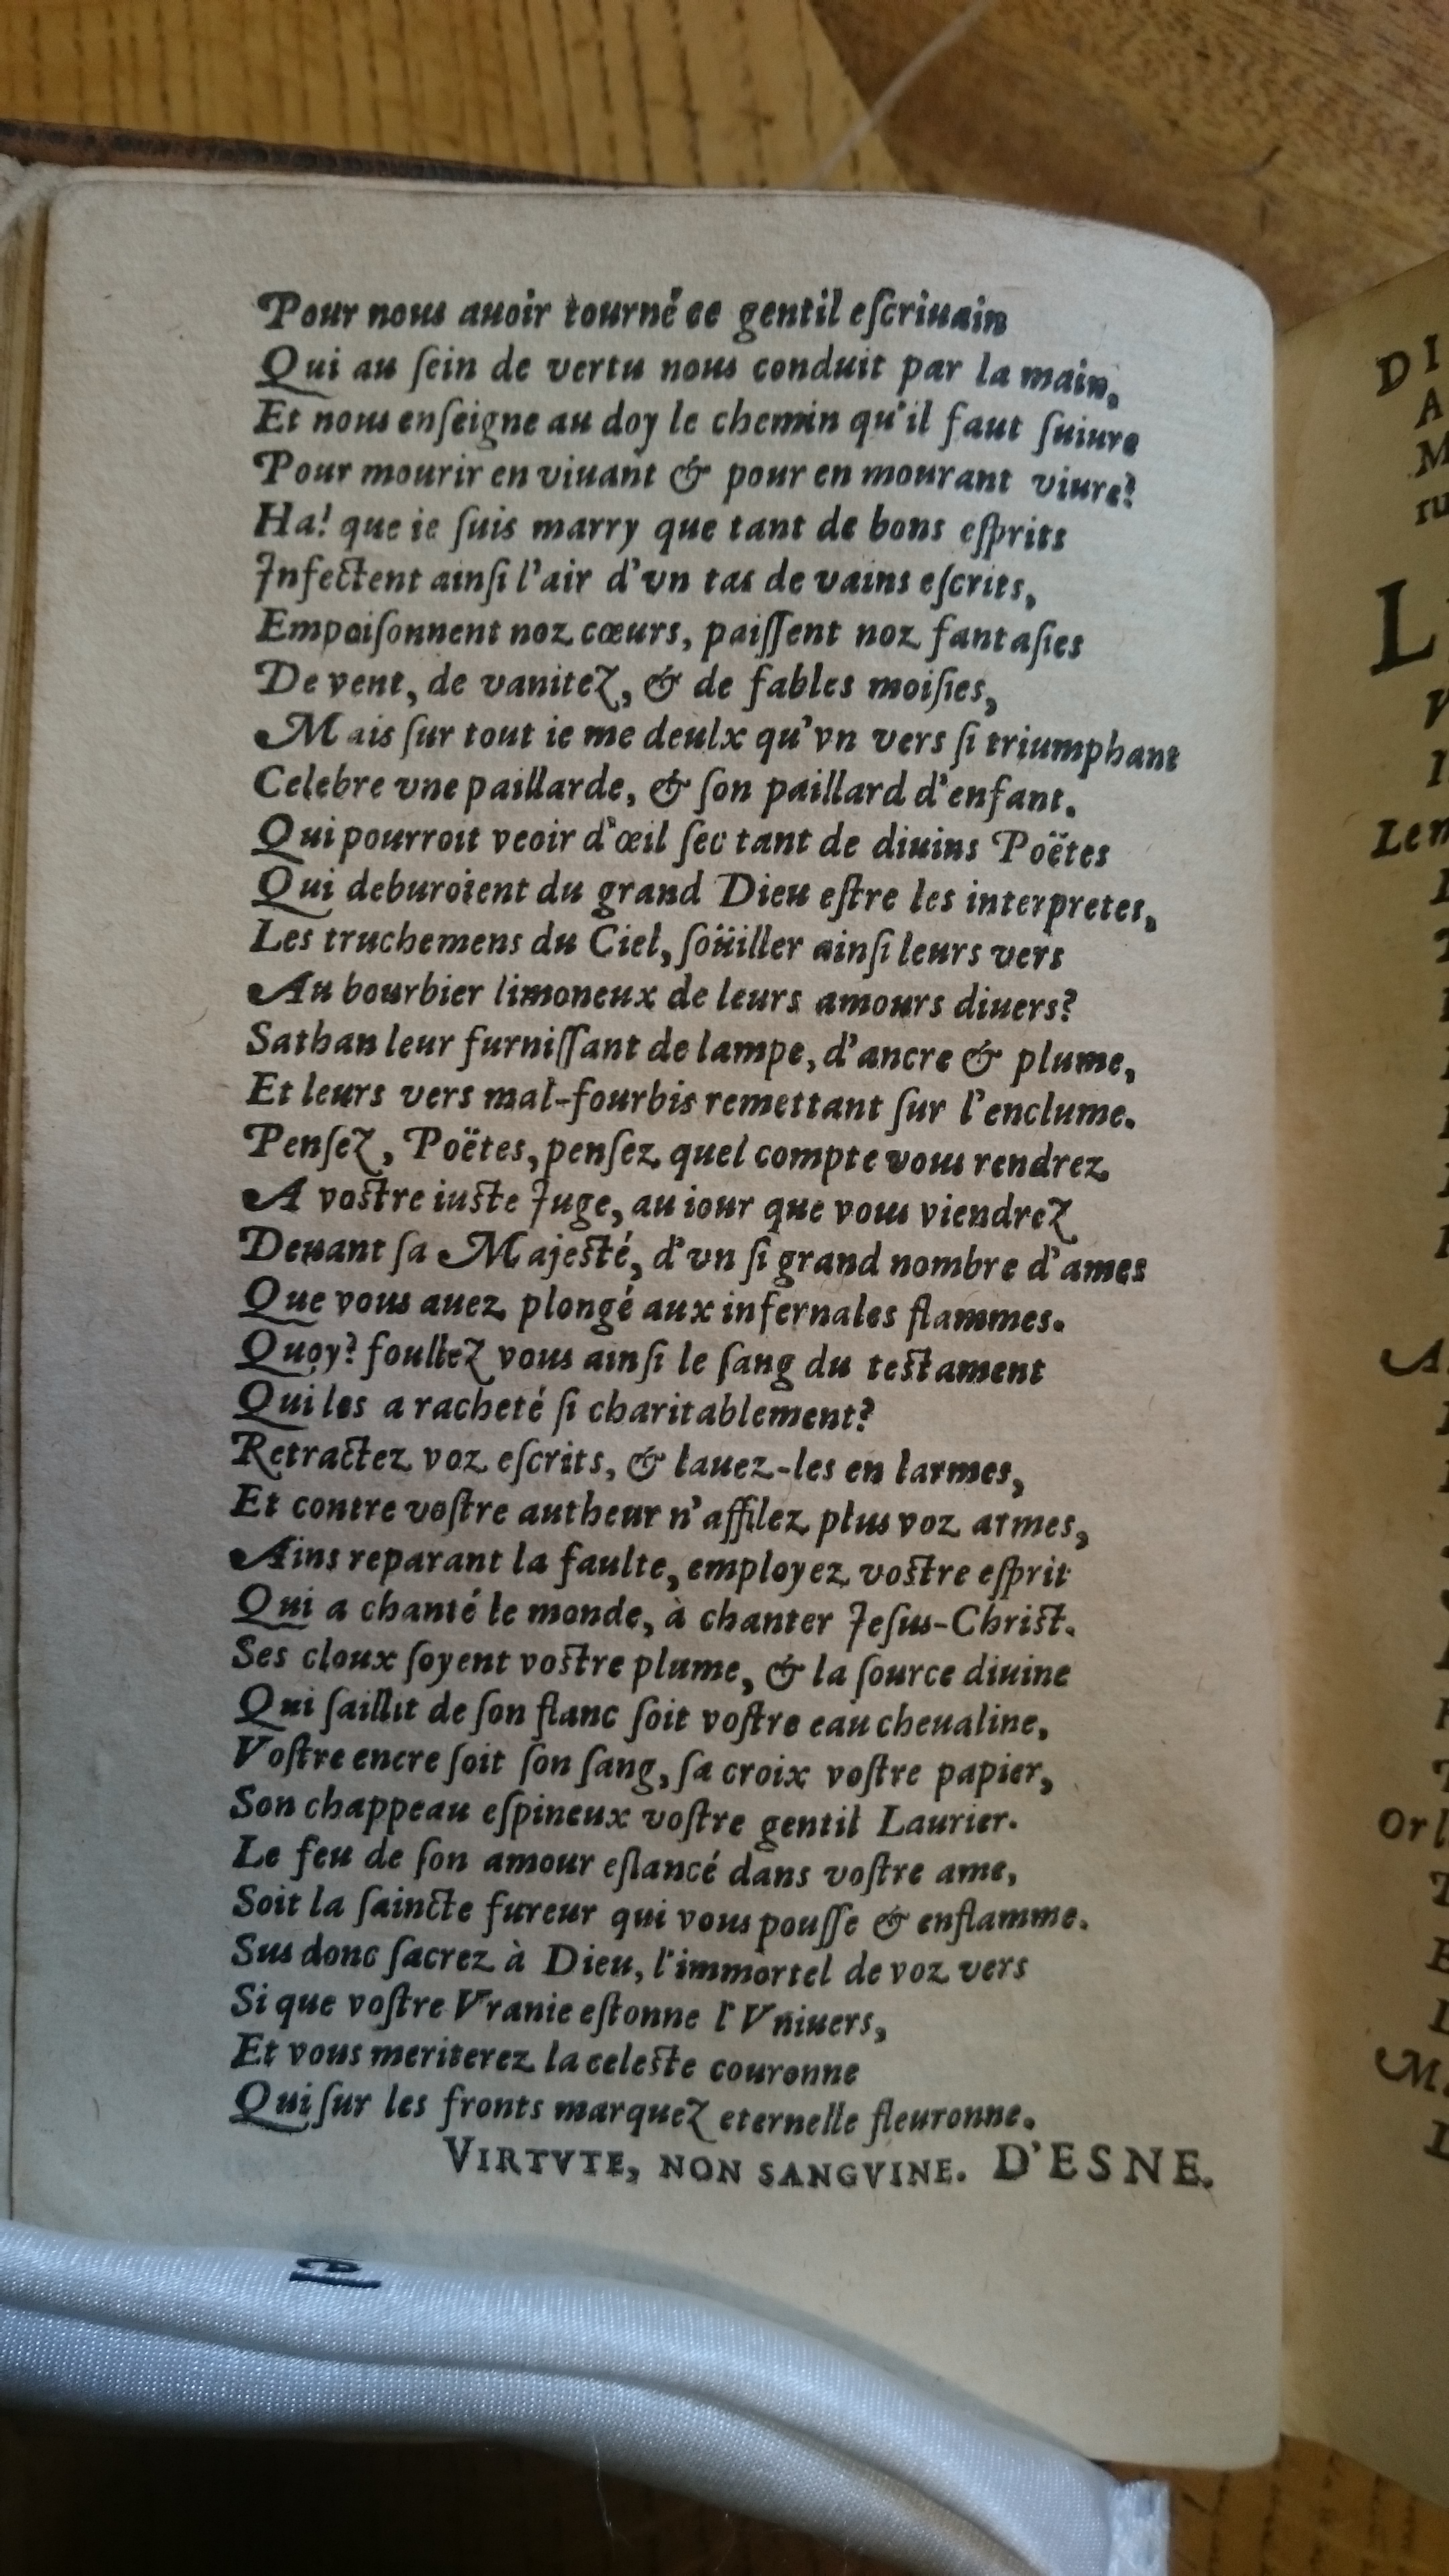 Pour nous auoir tourné ce gentil eſcriuain
Qui au ſein de vertu nous conduit par la main,
Et nous enſeigne au doy le chemin qu'il faut ſuiure
Pour mourir en viuant & pour en mourant viure?
Ha! que ie ſuis marry que tant de bons eſprits
Infectent ainſi l'air d'vn tas de vains eſcrits,
Empoiſonnent noz cœurs, paiſſent noz fantaſies
De vent, de vanitez, & de fables moiſies,
Mais ſur tout ie me deulx qu'vn vers ſi triumphant
Celebre vne paillarde, & ſon paillard d'enfant.
Qui pourroit veoir d'œil ſec tant de diuins Poëtes
Qui deburoient du grand Dieu eſtre les interpretes,
Les truchemens du Ciel, ſoüiller ainſi leurs vers
Au bourbier limoneux de leurs amours diuers?
Sathan leur furniſſant de lampe, d'ancre & plume,
Et leurs vers mal-fourbis remettant ſur l'enclume.
Penſez, Poëtes, penſez quel compte vous rendrez
A voſtre iuſte Juge, au iour que vous viendrez
Deuant ſa Majeſté, d'vn ſi grand nombre d'ames
Que vous auez plongé aux infernales flammes.
Quoy? foullez vous ainſi le ſang du teſtament
Qui les a racheté ſi charitablement?
Retractez voz eſcrits, & lauez-les en larmes,
Et contre voſtre autheur n'affilez plus voz armes,
Ains reparant la faulte, employez voſtre eſprit
Qui a chanté le monde, à chanter Jeſus-Chriſt.
Ses cloux ſoyent voſtre plume, & la ſource diuine
Qui ſaillit de ſon flanc ſoit voſtre eau cheualine,
Voſtre encre ſoit ſon ſang, ſa croix voſtre papier,
Son chappeau eſpineux voſtre gentil Laurier.
Le feu de ſon amour eſlancé dans voſtre ame,
Soit la ſaincte fureur qui vous pouſſe & enflamme.
Sus donc ſacrez à Dieu, l'immortel de voz vers
Si que voſtre Vranie eſtonne l'Vniuers,
Et vous meriterez la celeſte couronne
Qui ſur les fronts marquez eternelle fleuronne.
VIRTVTE, NON SANGVINE. D'ESNE.